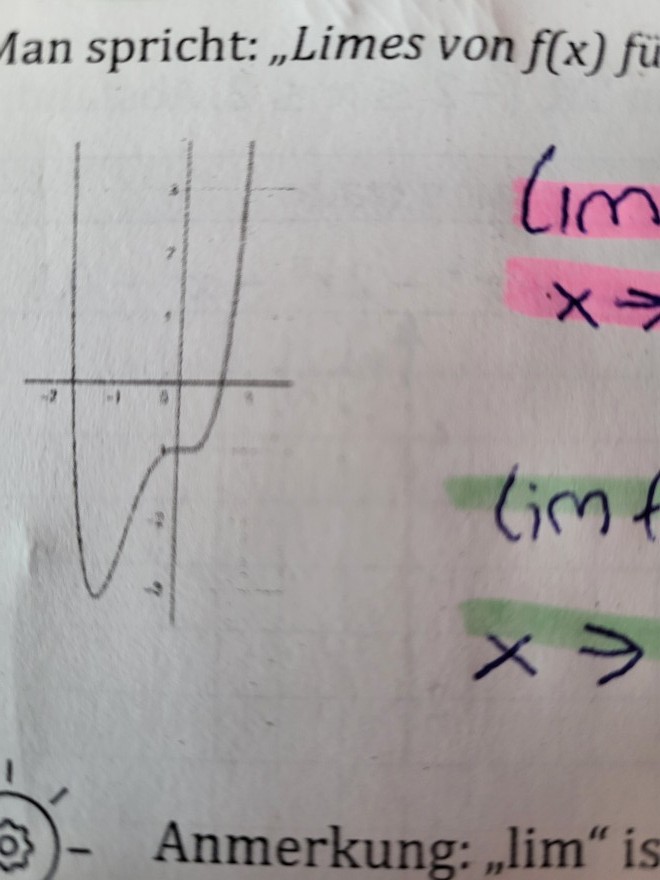 Man spricht: „Limes von f(x) fü
3
2
1
-2 -1 0
lim
x →
lim f
x →
Anmerkung: „lim“ is